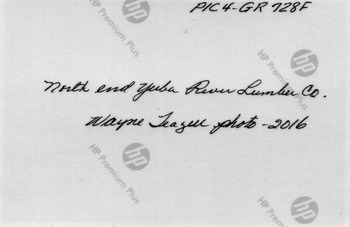 PIC4-GR 728F
North end Yuba River Lumber Co.
Wayne Teazel photo - 2016
HP Premium Plus
HP Premium Plus
HP Premium Plus
HP Premium Plus